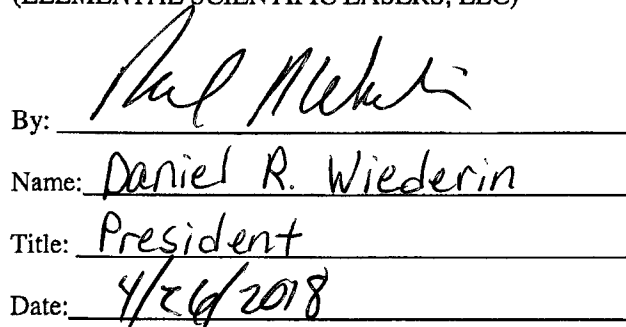 (ELEMENTAL SCIENTIFIC LASERS, LLC)
By:
Name: Daniel R. Wiederin
Title: President
Date: 4/26/2018